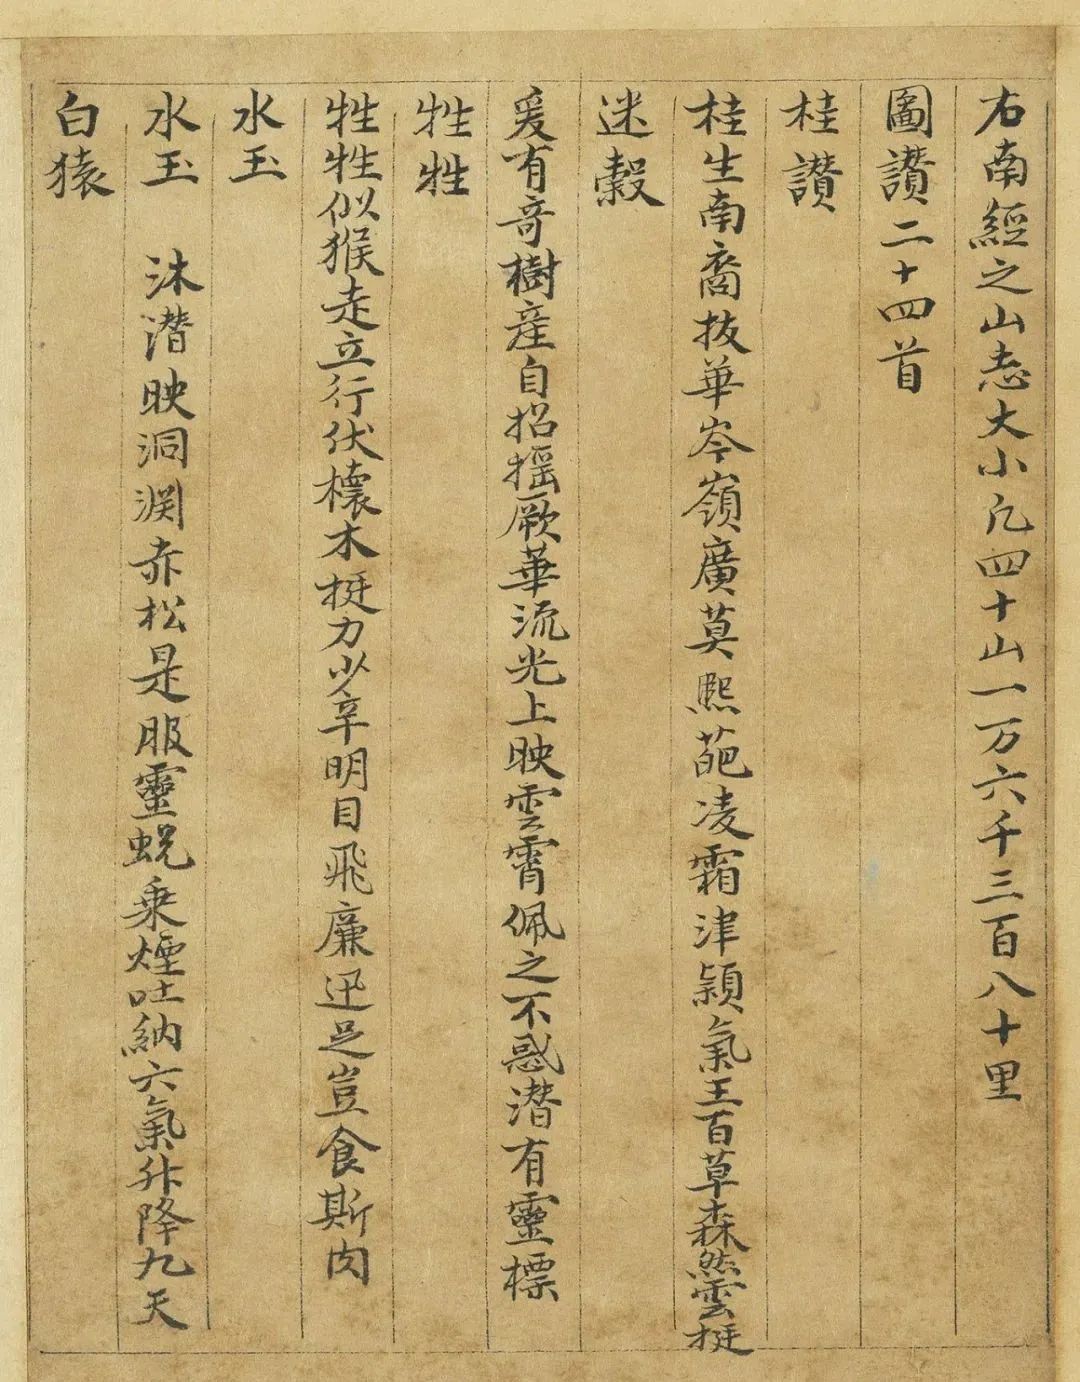 右南經之山志大小凡四十山一万六千三百八十里
圖讚二十四首
桂讚
桂生南裔拔華岑嶺廣莫熙葩凌霜津穎氣王百草森然雲挺
迷穀
爰有奇樹産自招揺厥華流光上映雲霄佩之不惑潜有靈標
狌狌
狌狌似猴走立行伏櫰木挺力少辛明目飛廉迅足豈食斯肉
水玉
水玉沐潜映洞渊赤松是服靈蛻乗煙吐納六氣升降九天
白猿